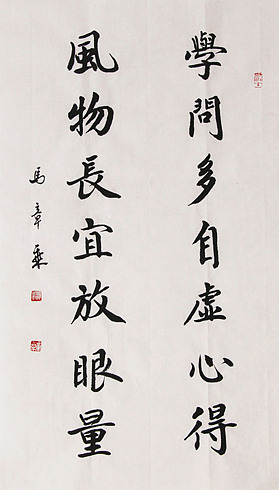 學問多自虛心得
風物長宜放眼量
馬章乘